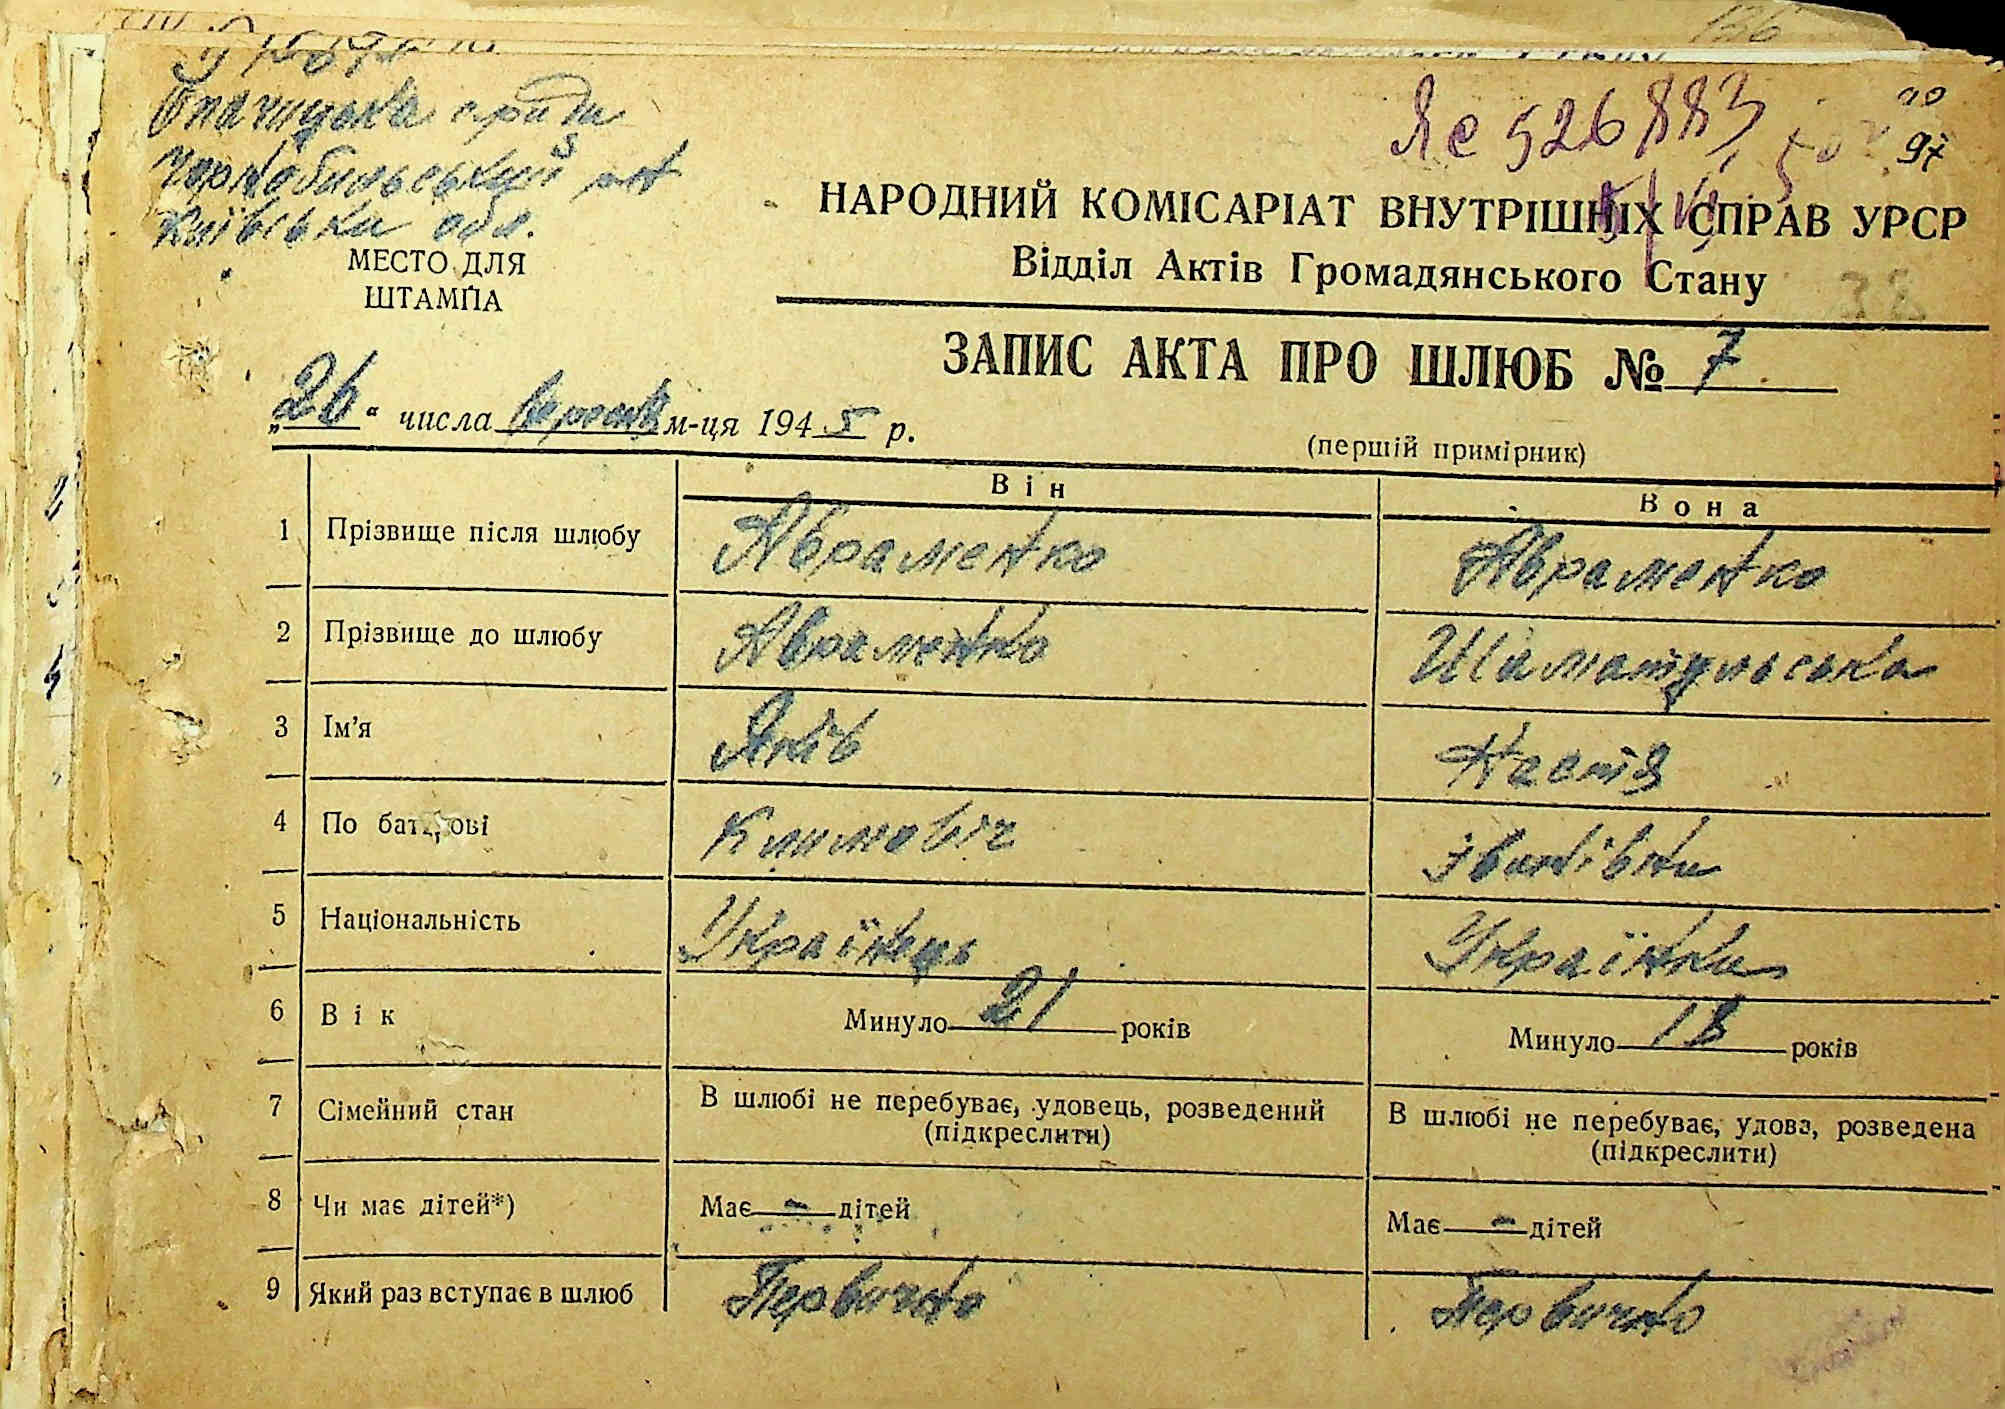 УРСР
Опачицька с/рада
Чорнобильський р-н
Київська обл.
МЕСТО ДЛЯ
ШТАМПА
136
Яс 526883
97
НАРОДНИЙ КОМІСАРІАТ ВНУТРІШНІХ СПРАВ УРСР
Відділ Актів Громадянського Стану
38
ЗАПИС АКТА ПРО ШЛЮБ № 7
„26" числа вересня м-ця 1945 р.
(першій примірник)
Він
Вона
1 Прізвище після шлюбу Авраменко Авраменко
2 Прізвище до шлюбу Авраменко Шаматульська
3 Ім'я Яків Настя
4 По батькові Климовіч Іванівна
5 Національність Українець Українка
6 Вік Минуло 21 років Минуло 18 років
7 Сімейний стан В шлюбі не перебуває, удовець, розведений (підкреслити) В шлюбі не перебуває, удова, розведена (підкреслити)
8 Чи має дітей*) Має - дітей Має - дітей
9 Який раз вступає в шлюб Первично Первично